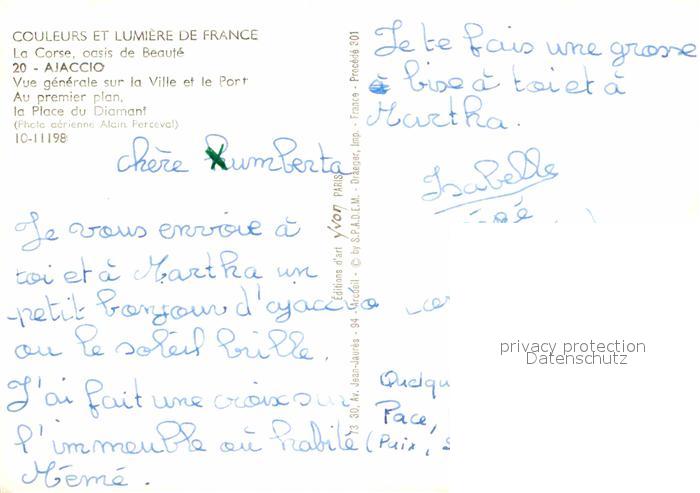 COULEURS ET LUMIÈRE DE FRANCE
La Corse, oasis de Beauté
20 - AJACCIO
Vue générale sur la Ville et le Port
Au premier plan,
la Place du Diamant
(Photo aérienne Alain Perceval)
10-11198
chère Humberta
Je vous envoie à
toi et à Martha un
petit bonjour d'ajaccio
ou le soleil brille.
J'ai fait une croix sur
l'immeuble où habite
Mémé.
Editions d'art Yvon PARIS
73 30, Av. Jean-Jaurès - 94 - Arcueil - © by S.P.A.D.E.M. - Draeger, Imp. - France - Procédé 301
Je te fais une grosse
bise à toi et à
Martha.
Isabelle
Quelqu
Pace,
(Paix,
privacy protection
Datenschutz